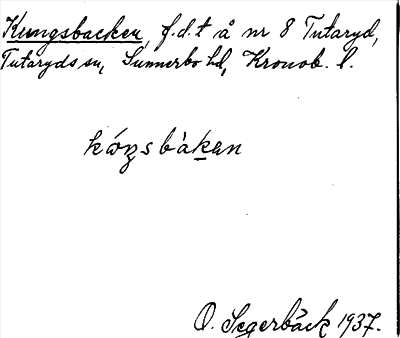 Kungsbacken, f.d.t å nr 8 Tutaryd,
Tutaryds sn, Sunnerbo hd, Kronob. l.
kóŋsbàkan
O. Segerbäck 1937.